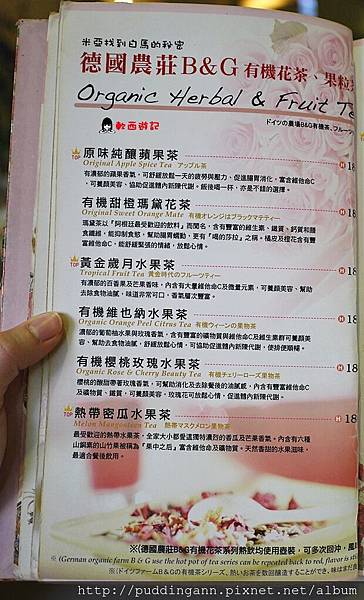 米亞找到白馬的秘密
德國農莊B&G 有機花茶、果粒
Organic Herbal & Fruit Te
ドイツの農場B&G有機茶、フルーツ
軟西遊記
TOP 原味純釀蘋果茶 H 18
Original Apple Spice Tea アップル茶
有濃郁的蘋果香氣，可舒緩放鬆一天的疲勞與壓力、促進腸胃消化，富含維他命C
、可養顏美容、協助促進體內新陳代謝。飯後喝一杯，亦是不錯的選擇。
有機甜橙瑪黛花茶 H 18
Original Sweet Orange Mate 有機オレンジはブラックマテティー
瑪黛茶以『阿根廷最受歡迎的飲料』而聞名，含有豐富的維生素、纖質、鈣質和膳
食纖維，能抑制食慾、幫助腸胃蠕動，更有「喝的莎拉」之稱。橘皮及橙花含有豐
富維他命C，能舒緩緊張的情緒，放鬆心情。
TOP 黃金歲月水果茶 H 18
Tropical Fruit Tea 黃金時代のフルーツティー
有濃郁的百香果及芒果香味，內含有大量維他命C及微量元素，可養顏美容、幫助
去除食物油膩，味道非常可口，香氣層次豐富。
有機維也納水果茶 H 18
Organic Orange Peel Citrus Tea 有機ウィーンの果物茶
濃郁的葡萄柚水果與玫瑰香氣，含有豐富的礦物質與維他命C及維生素群可養顏美
容、幫助去食物油膩，舒緩放鬆心情，可協助促進體內新陳代謝，使排便順暢。
有機櫻桃玫瑰水果茶 H 18
Organic Rose & Cherry Beauty Tea 有機チェリーローズ果物茶
櫻桃的酸甜帶著玫瑰香氣，可幫助消化及去除餐後的油膩感，內含有豐富維他命C
及礦物質、纖質，可養顏美容，玫瑰花可放鬆心情、促進體內新陳代謝。
TOP 熱帶密瓜水果茶 H 18
Melon Mangosteen Tea 熱帯マスクメロン果物茶
最受歡迎的熱帶水果茶，全家大小都愛這獨特濃烈的香瓜及芒果香氣。內含有六種
山銅素的山竹果被稱為『果中之后』富含維他命C及礦物質。天然香甜的水果滋味，
最適合餐後飲用。
※(德國農莊B&G有機花茶系列熱飲均使用壺裝，可多次回沖，風
※ (German organic farm B & G use the hot pot of tea series can be repeated back to red, flavor is sti
(ドイツファームB&Gの有機茶シリーズ、熱いお茶を数回醸造することができ、味はまだ
http://puddingann.pixnet.net/album